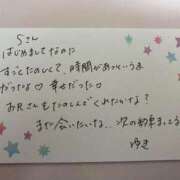 Sさん
はじめましてなのに
すごくたのしくて、時間があっという ま
だったな♡ 幸せだった♡
お兄さんもたのしんでくれたかな？
また会いたいな、次の約束まってる
ゆき